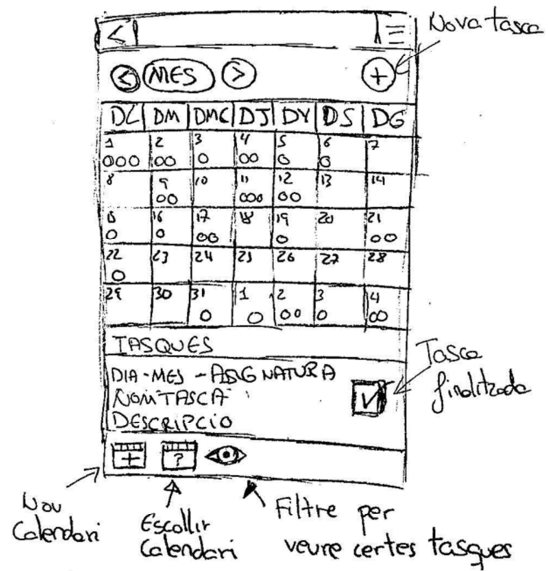 <
Nova tasca
< MES > +
DL DM DMC DJ DV DS DG
1 2 3 4 5 6 7
8 9 10 11 12 13 14
15 16 17 18 19 20 21
22 23 24 25 26 27 28
29 30 31 1 2 3 4
TASQUES
DIA-MES-ASIGNATURA
NOM TASCA
DESCRIPCIO
Tasca
finalitzada
+ ?
Nou
Calendari
Escollir
Calendari
Filtre per
veure certes tasques